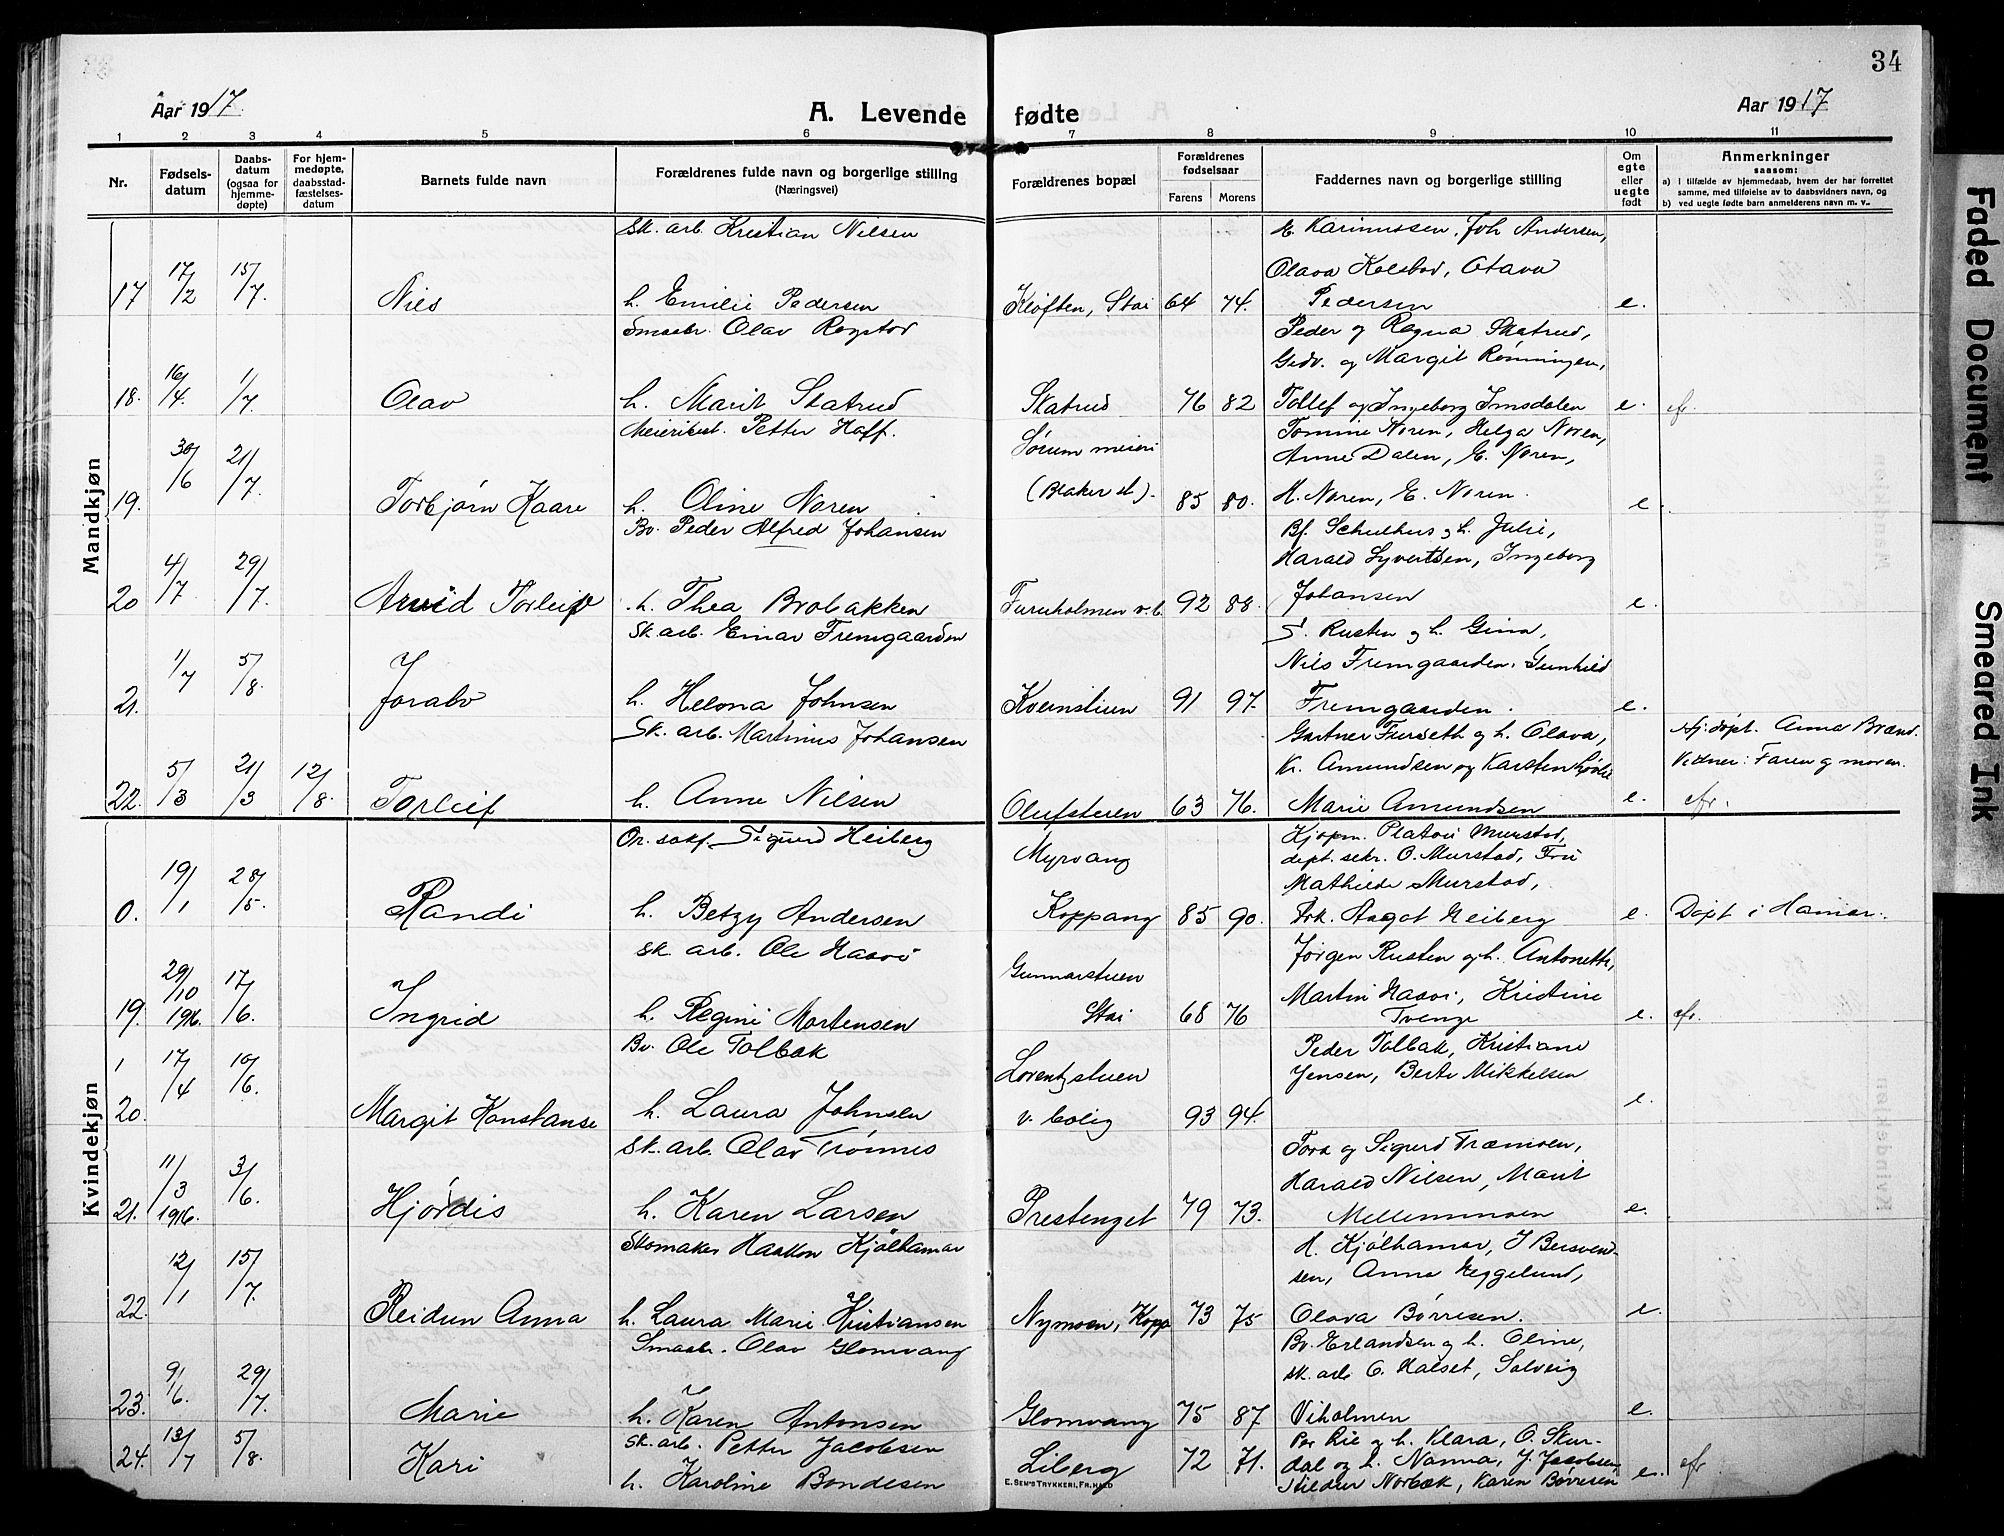 34
Aar 1917.
A. Levende fødte
Aar 1917
1 2 3 4 5 6 7 8 9 10 11
Nr.
Fødsels-
datum
Daabs-
datum
(ogsaa for
hjemme-
døpte)
For hjem-
medøpte,
daabsstad-
fæstelses-
datum
Barnets fulde navn
Forældrenes fulde navn og borgerlige stilling
(Næringsvei)
Forældrenes bopæl
Forældrenes
fødselsaar
Farens Morens
Faddernes navn og borgerlige stilling
Om
egte
eller
uegte
født
Anmerkninger
saasom:
a) i tilfælde av hjemmedaab, hvem der har forrettet
samme, med tilføielse av to daabsvidners navn, og
b) ved uegte fødte barn anmelderens navn m. v.
Mandkjøn
Sk. arb. Kristian Nilsen
Joh Andersen,
Olava Kolstad, Otava
17 17/2 15/7 Nils h. Emilie Pedersen Kløften, Stai 64 74. Pedersen e.
Smaabr. Olav Rogstad
Peder og Ragna Skatrud,
Gudv. og Margit Rønningen,
18. 16/4. 1/7. Olav h. Marit Skatrud Skatrud 76 82 Tollef og Ingeborg Imsdalen e. efr.
Meieribest. Petter Hoff.
Sørum meieri
Tomine Noren, Helga Noren,
Anne Dalen, E. Noren,
19. 30/6 21/7. Torbjørn Kaare h. Oline Noren (Blaker st). 85 80. H. Noren, E. Noren. e.
Bv. Peder Alfred Johansen
Bf. Schulhus og h. Julie,
Harald Syvertsen, Ingeborg
20 4/7 29/7. Arvid Torleif h. Thea Brobakken Furuholmen v.b. 92 88. Johansen e.
Sk. arb. Einar Fremgaarden
S. Rusten og h. Gina,
Nils Fremgaarden, Gunhild
21. 1/7 5/8. h. Helena Johnsen Kvernstuen 91 97. Fremgaarden. e.
Sk. arb. Martinus Johansen
Gartner Furseth og h. Olava,
Kr. Amundsen og Karsten
Hj.døpt. Anna Brænd.
Vidner: Faren og moren.
22. 5/3 21/3 12/8. Torleif h. Anne Nilsen Olufstuen 63 76. Marie Amundsen e. efr.
Kvindekjøn
Or. sakf. Sigurd Heiberg
Myrvang
Kjøpm. Platou Murstad,
dept. sekr. O. Murstad, Fru
Mathilde Murstad,
0. 19/1 28/5. Randi h. Betzy Andersen Koppang 85 90. Frk. Aagot Heiberg e. Døpt i Hamar.
Sk. arb. Ole Haavi
Gunnarstuen
Jørgen Rusten og h. Antonette,
Martin Haavi, Kristine
19. 29/10 1916. 17/6. Ingrid h. Regine Mortensen Stai 68 76 Tvenge e. efr.
Bv. Ole Tolbak
Lorentzstuen
Peder Tolbak, Kristiane
Jensen, Berte Mikkelsen
20. 17/4 10/6. Margit Konstanse h. Laura Johnsen v. bolig 93 94. e.
Sk. arb. Olav Trønnes
Tora og Sigurd Træmoen,
Harald Nilsen, Marit
21. 11/3 1916. 3/6. Hjørdis h. Karen Larsen Prestenget 79 73. Mellemmoen e.
Skomaker Haakon Kjølhamar
H. Kjølhamar, J Bersvend-
sen, Anna Heggelund,
22. 12/1 15/7. Reidun Anna h. Laura Marie Kristiansen Nymoen, Kopp 73 75 Olava Børresen. e.
Smaabr. Olav Glomvang
Bv. Erlandsen og h. Oline,
sk. arb O. Halset, Solveig
23. 9/6. 29/7. Marie h. Karen Antonsen Glomvang 75 87 Viholmen e.
Sk. arb. Petter Jacobsen
Per Lie og h. Klara, O. Skur-
24. 13/7 5/8. Kari Liberg 72 71. dal og h. Nanna, J. Jacobsen e. efr
h. Karoline Bondesen Hildur Norbæk, Karen Børresen
E. SEM'S TRYKKERI, FR.HALD
Faded Document
Smeared Ink